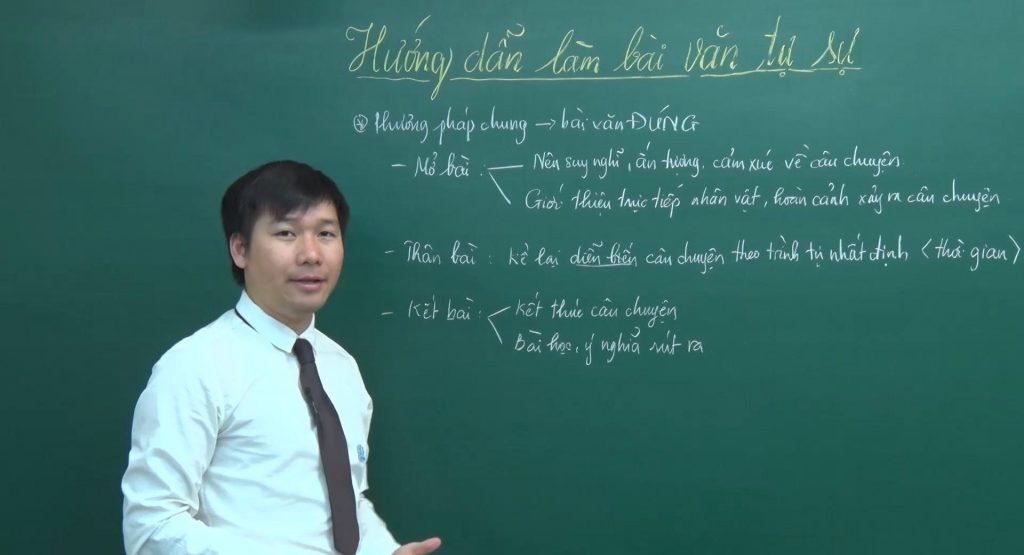 Hướng dẫn làm bài văn tự sự
* Phương pháp chung → bài văn ĐÚNG
- Mở bài: Nên suy nghĩ, ấn tượng, cảm xúc về câu chuyện.
Giới thiệu trực tiếp nhân vật, hoàn cảnh xảy ra câu chuyện
- Thân bài: kể lại diễn biến câu chuyện theo trình tự nhất định <thời gian>
- Kết bài: kết thúc câu chuyện
Bài học, ý nghĩa rút ra